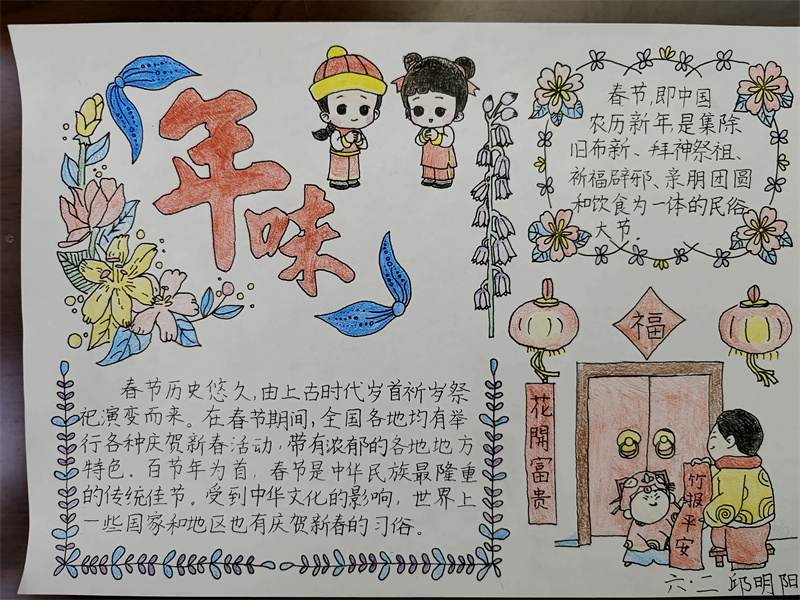 年味
春节,即中国
农历新年,是集除
旧布新、拜神祭祖、
祈福辟邪、亲朋团圆
和饮食为一体的民俗
大节.
福
花開富贵
竹报平安
春节历史悠久,由上古时代岁首祈岁祭
祀演变而来。在春节期间,全国各地均有举
行各种庆贺新春活动,带有浓郁的各地地方
特色。百节年为首,春节是中华民族最隆重
的传统佳节。受到中华文化的影响,世界上
一些国家和地区也有庆贺新春的习俗。
六·二 邱明阳